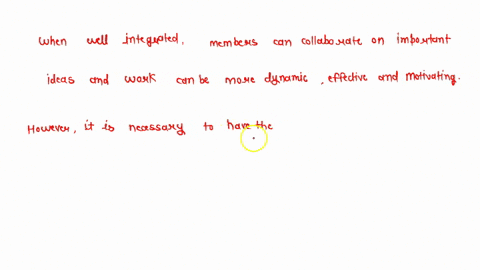 When well integrated, members can collaborate on important
ideas and work can be more dynamic, effective and motivating.
However, it is necessary to have the